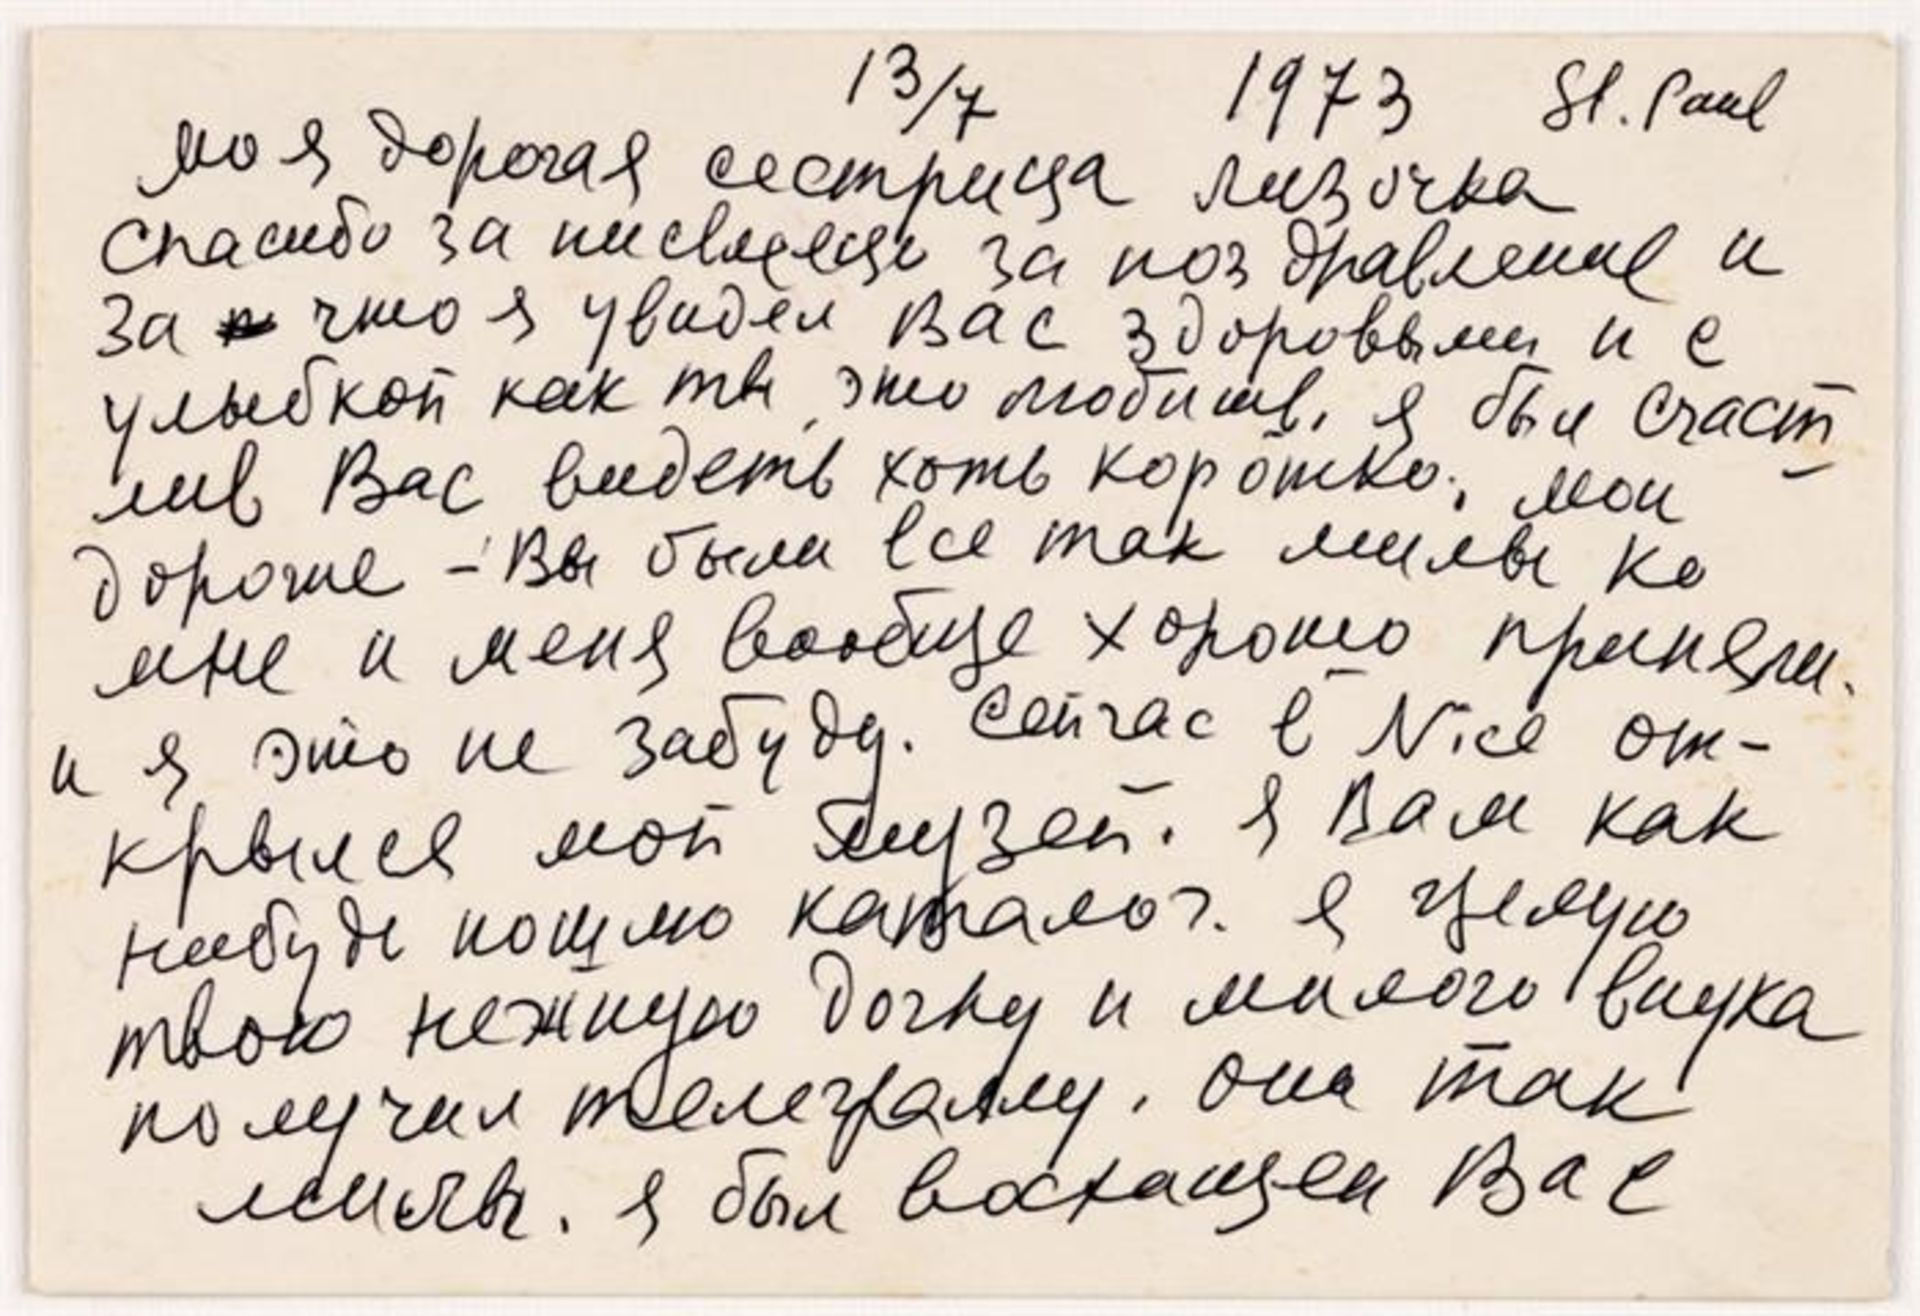 13/7 1973 St. Paul
моя дорогая сестрица лизочка
спасибо за письмецо за поздравление и
за что я увидел Вас здоровыми и с
улыбкой как ты это любишь. я был счаст
лив Вас видеть хоть коротко. мои
дорогие - Вы были все так милы ко
мне и меня вообще хорошо приняли.
и я это не забуду. Сейчас в Nice от-
крылся мой музей. я Вам как
нибудь пошлю каталог. я целую
твою нежную дочку и милого внука
получил телеграмму. они так
милы. я был восхищен Вас